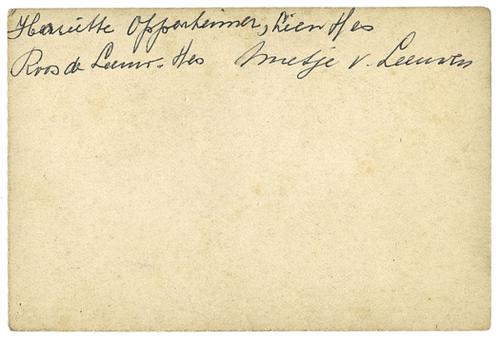 Henriëtte Oppenheimer, Lien Hes
Roos de Leeuw-Hes v. Leeuwen